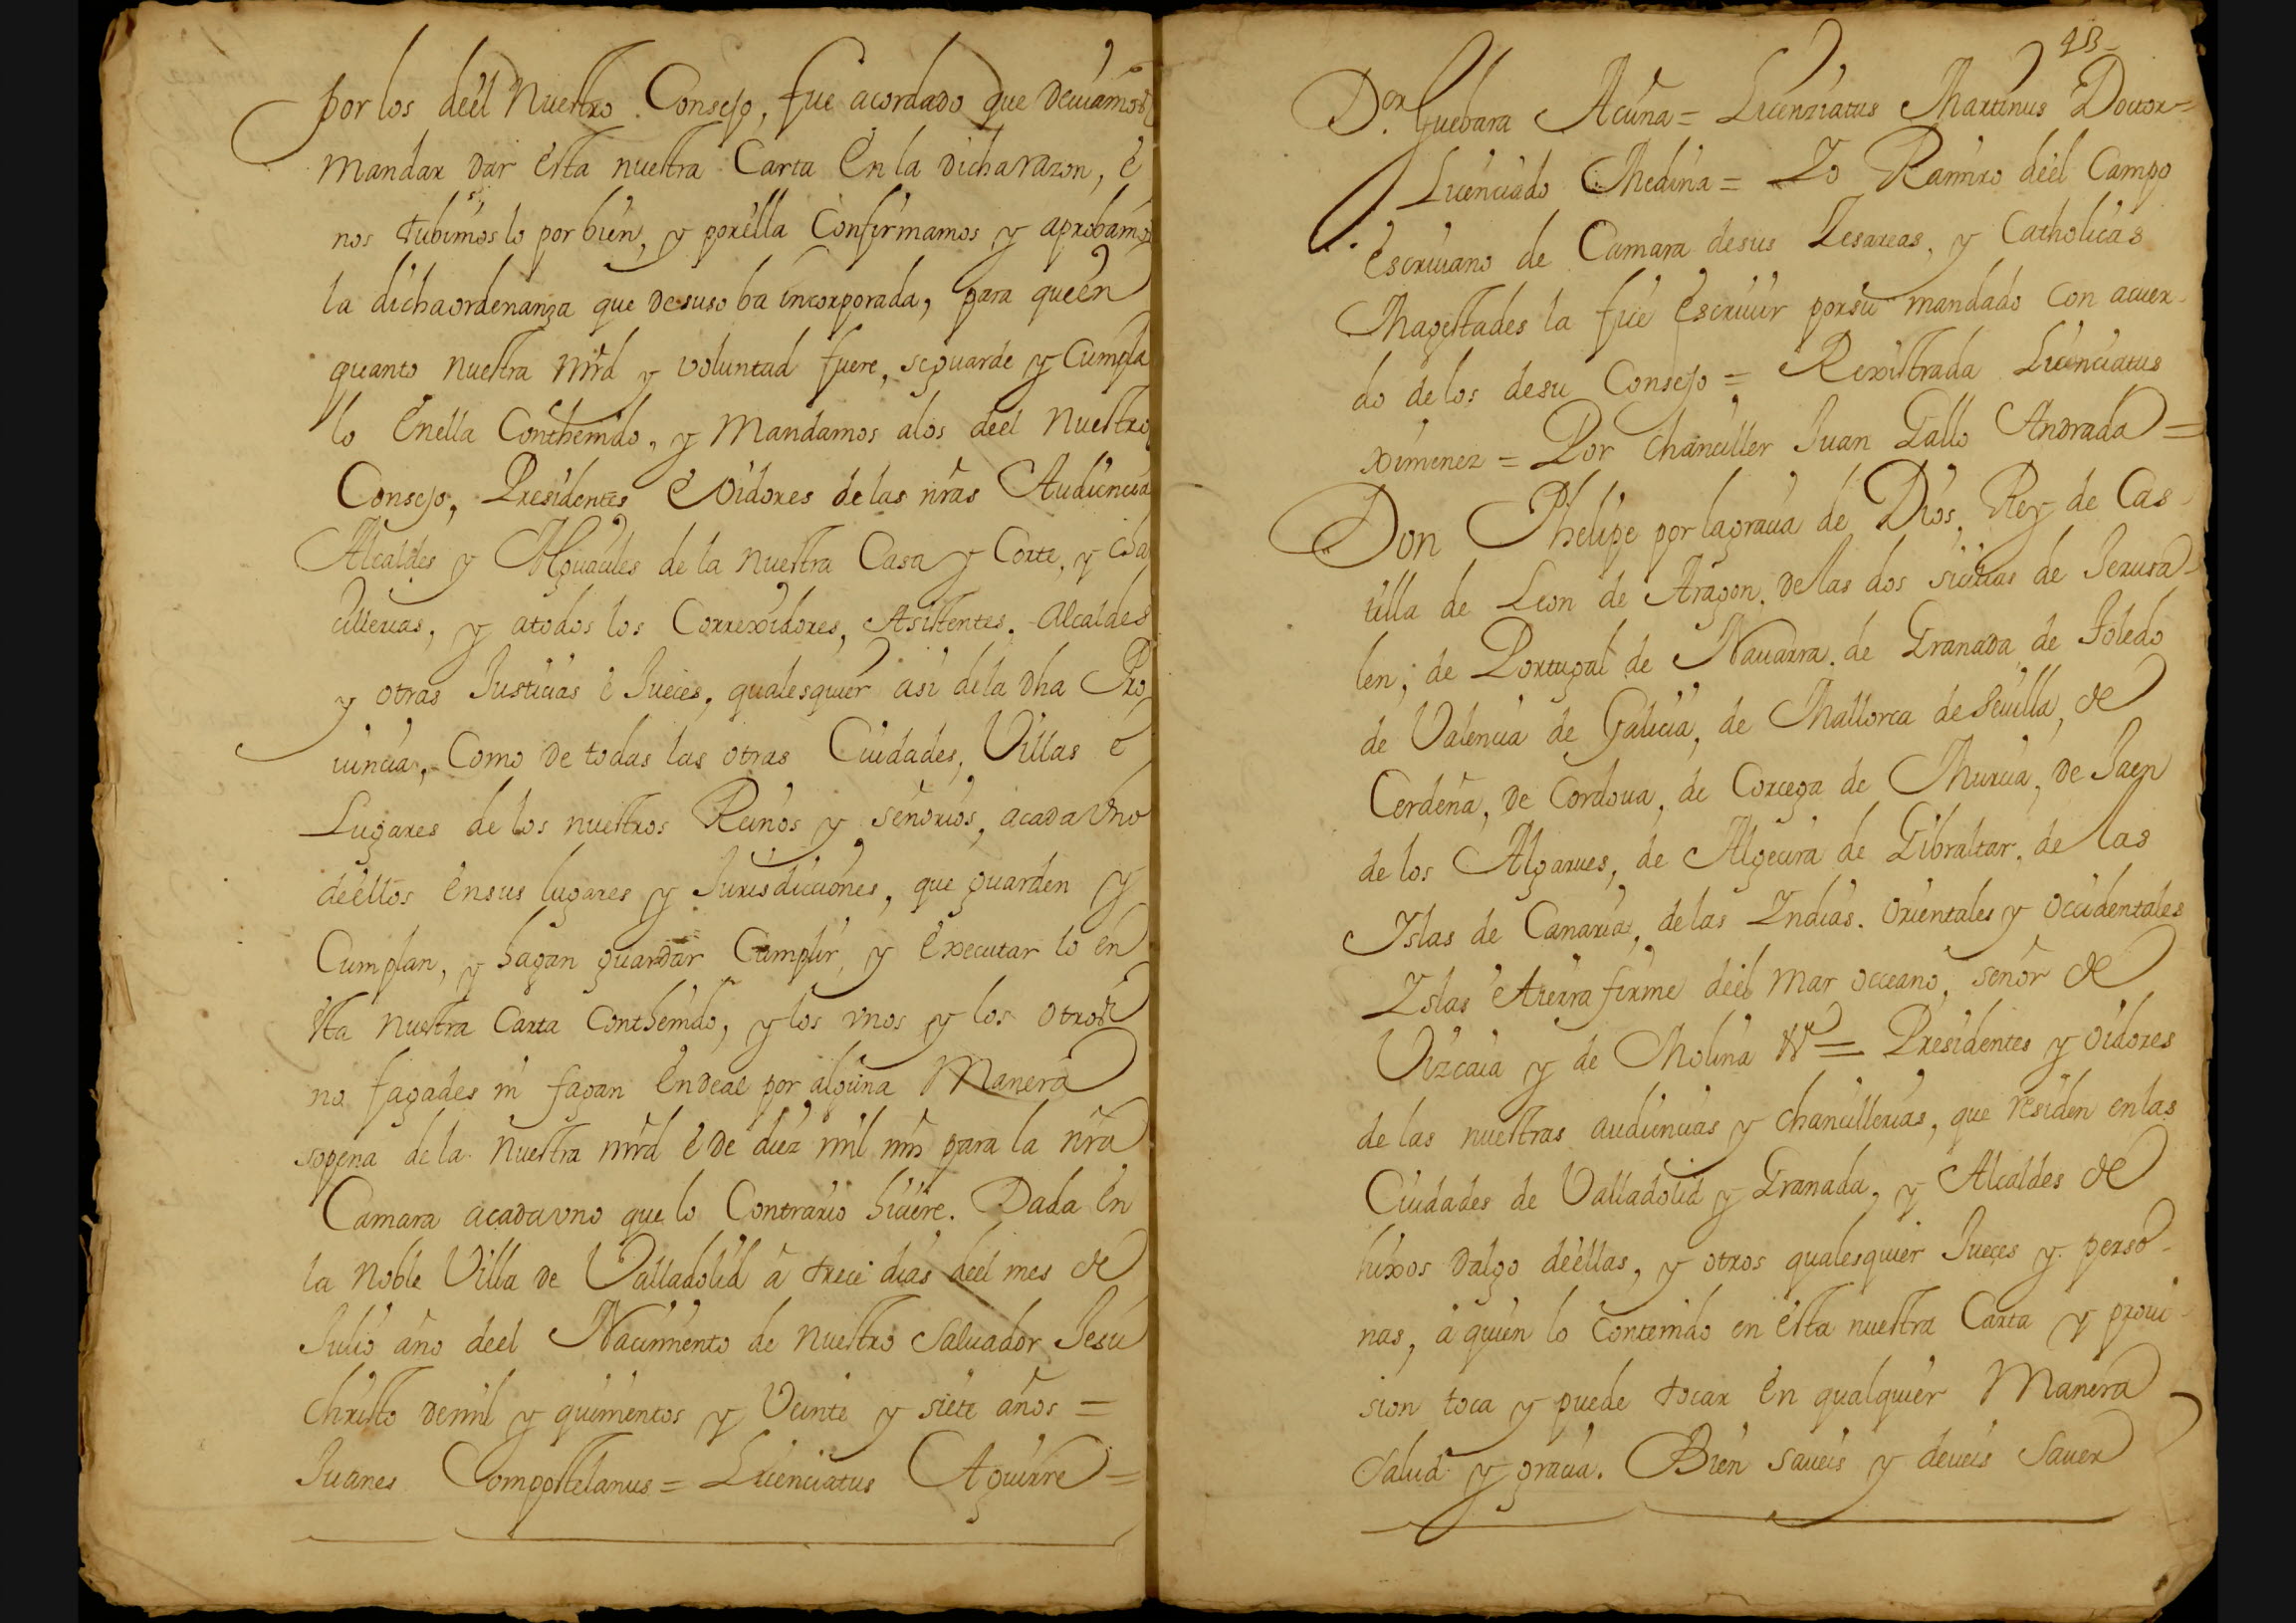 por los deel Nuestro Consejo, fue acordado que deuiamos
mandar dar esta nuestra Carta en la dicha razon, e
nos tubimos lo por bien, y por ella Confirmamos y aprobamos
la dicha ordenanza que desuso ba incorporada, para que en
quanto nuestra mrd y voluntad fuere, se guarde y Cumpla
lo en ella Conthenido, y Mandamos a los deel Nuestro
Consejo, Presidentes e Oidores de las nras Audiencias
Alcaldes y Alguaciles de la nuestra Casa y Corte, y Chan
cillerias, y a todos los Correxidores, Asistentes, Alcaldes
y otras Justicias e Jueces, qualesquier asi de la dha Pro
uincia, Como de todas las otras Ciudades, Villas e
Lugares de los nuestros Reinos y señorios, a cada vno
deellos en sus lugares y Jurisdicciones, que guarden y
Cumplan, y hagan guardar Cumplir, y executar lo en
esta nuestra Carta Conthenido, y los vnos y los otros
no fagades ni fagan endeal por alguna Manera
sopena de la nuestra mrd e de diez mil mrs para la nra
Camara a cada vno que lo Contrario hiciere. Dada en
la noble Villa de Valladolid a trece dias deel mes de
Julio año deel Nacimiento de nuestro Saluador Jesu
christo de mil y quinientos y Veinte y siete años =
Juanes Compostelanus = Licenciatus Aguirre =
48
Dor. Guebara Acuña = Licenziatus Martinus Doctor =
Licenciado Medina = Yo Ramiro deel Campo
escriuano de Camara de sus Zesareas, y Catholicas
Magestades la fice escriuir por su mandado con acuer-
do de los de su Consejo = Rexistrada Licenciatus
ximenez = Por Chanciller Juan Gallo Andrada =
Don Phelipe por la gracia de Dios, Rey de Cas-
tilla de Leon de Aragon, de las dos sicilias de Jerusa-
len, de Portugal de Nauarra, de Granada de Toledo
de Valencia de Galicia, de Mallorca de Seuilla, de
Cerdeña, de Cordoua, de Corcega de Murcia, de Jaen
de los Algarues, de Algecira de Gibraltar, de las
Islas de Canaria, de las Indias, orientales y occidentales
Yslas e tierra firme deel mar occeano, señor de
Vizcaia y de Molina = Presidentes y oidores
de las nuestras audiencias y chancillerias, que residen en las
Ciudades de Valladolid y Granada, y Alcaldes de
hixos dalgo deellas, y otros qualesquier Jueces y perso-
nas, a quien lo contenido en esta nuestra Carta y proui-
sion toca y puede tocar en qualquier Manera
salud y gracia. Bien saueis y deueis sauer